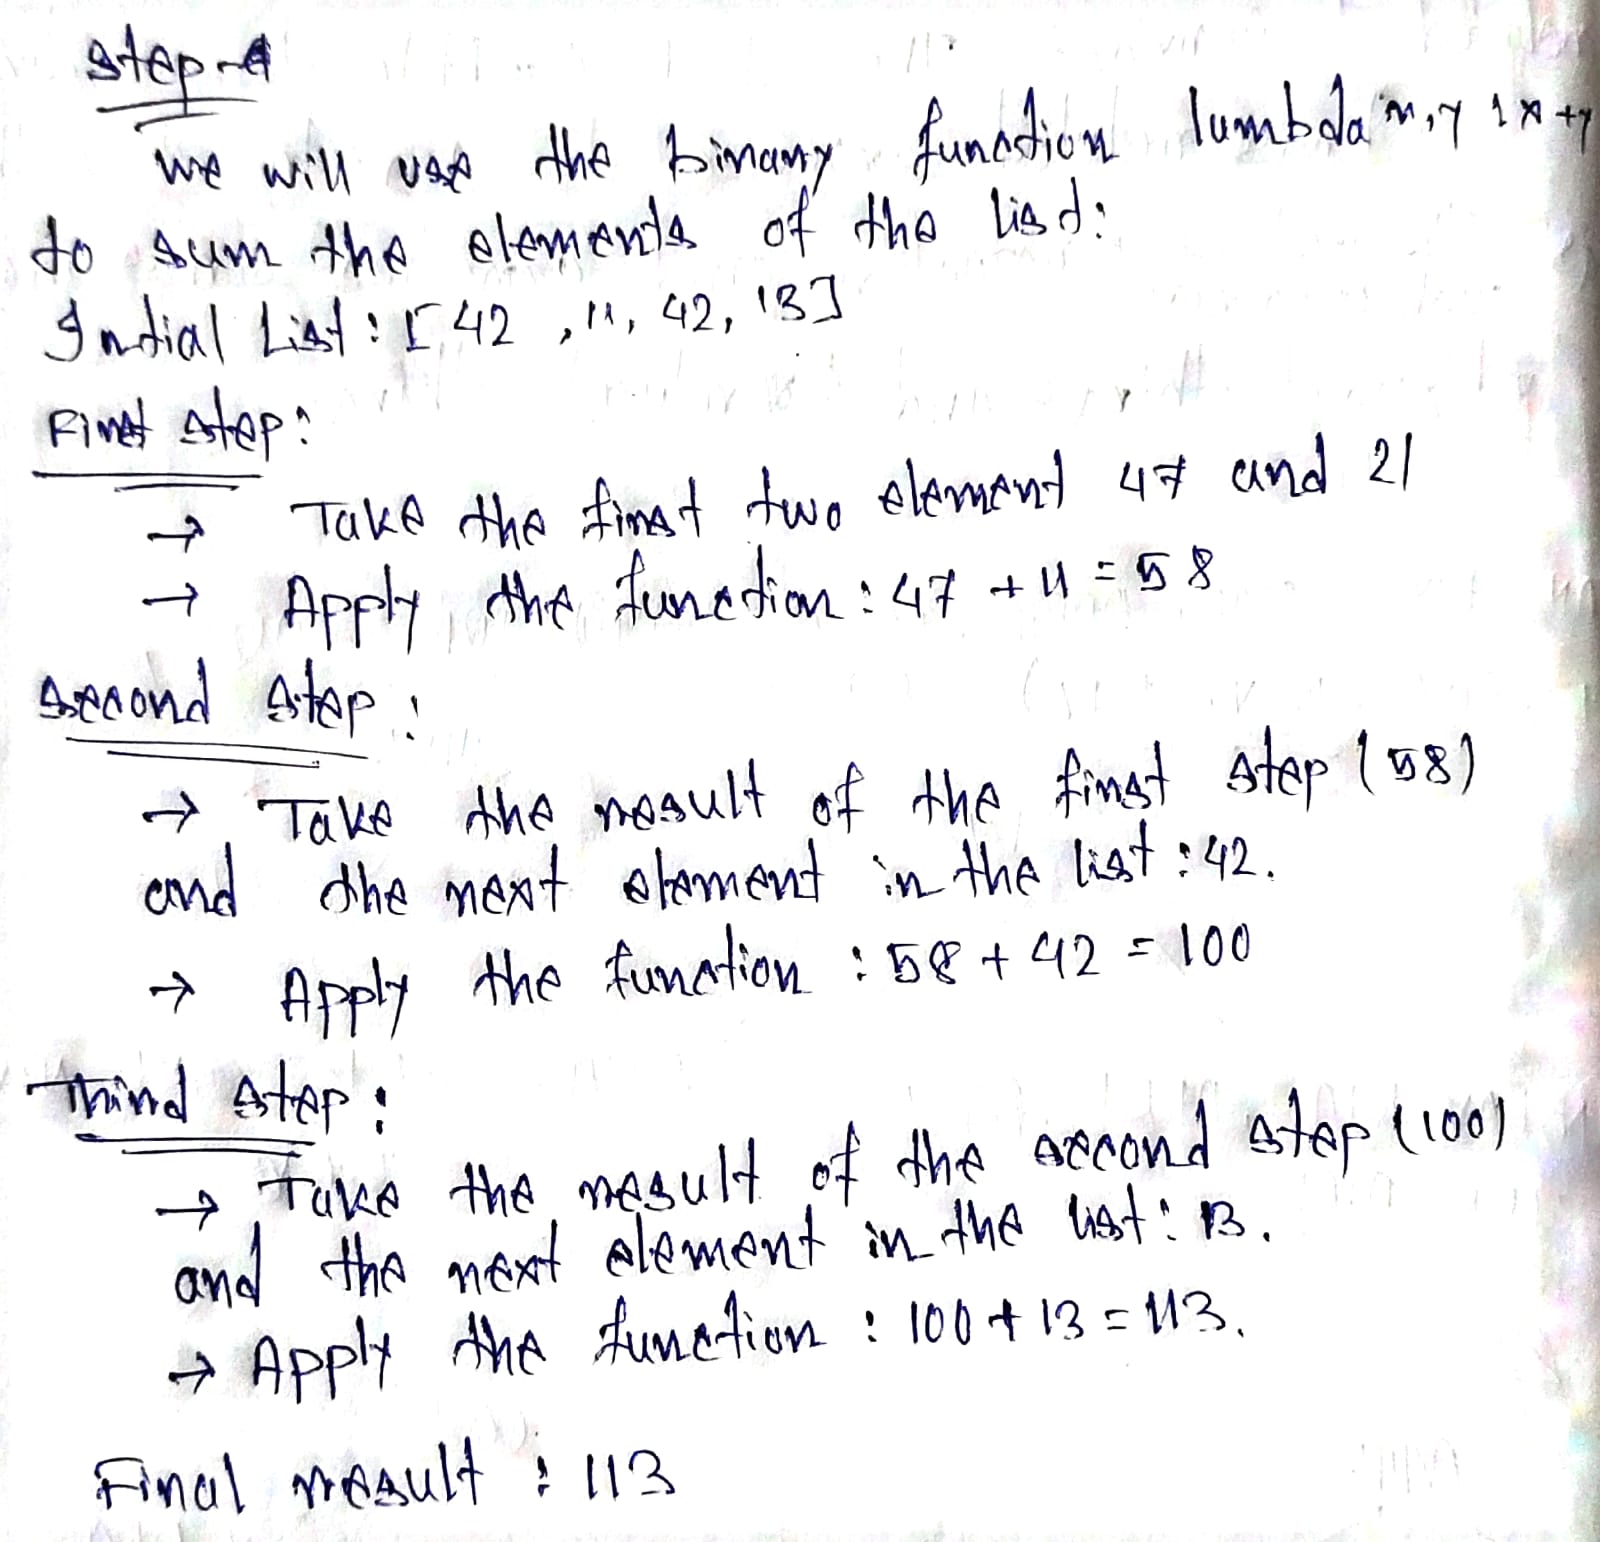 Step-4
We will use the binary function lumbda x,y : x+y
to sum the elements of the list:
Intial List : [42 , 11, 42, 13]
First step:
→ Take the first two element 47 and 21
→ Apply the function : 47 + 11 = 58
Second step :
→ Take the result of the first step (58)
and the next element in the list : 42.
→ Apply the function : 58 + 42 = 100
Third step :
→ Take the result of the second step (100)
and the next element in the list : 13.
→ Apply the function : 100 + 13 = 113.
Final result : 113